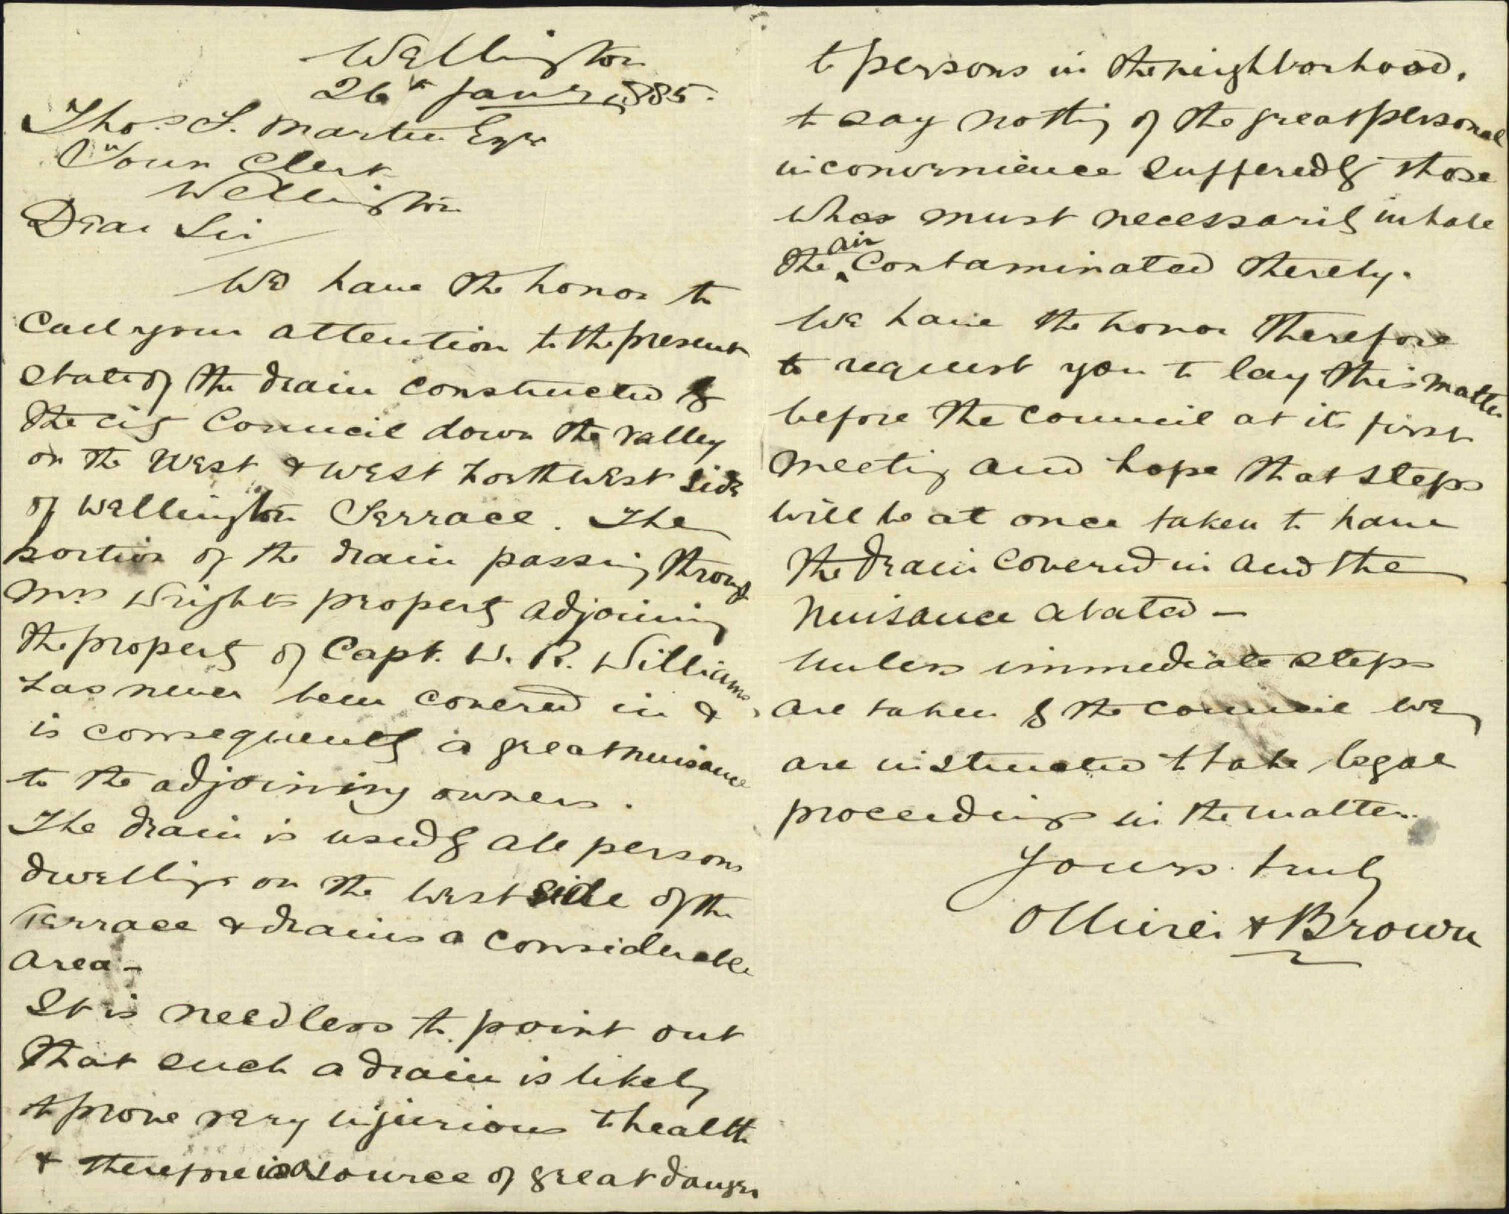 Wellington
26th Janry 1885.
Thos. S. Martin Esqr
Town Clerk
Wellington
Dear Sir
We have the honor to
call your attention to the present
state of the drain constructed by
the city Council down the valley
on the West & West Northwest side
of Wellington Terrace. The
portion of the drain passing through
Mrs Wrights property adjoining
the property of Capt. W. R. Williams
has never been covered in &
is consequently a great nuisance
to the adjoining owners.
The drain is used by all persons
dwelling on the West side of the
Terrace & drains a considerable
area -
It is needless to point out
that such a drain is likely
to prove very injurious to health
& therefore is a source of great danger
to persons in the neighborhood,
to say nothing of the great personal
inconvenience suffered by those
who must necessarily inhale
the air contaminated thereby.
We have the honor therefore
to request you to lay this matter
before the Council at its first
meeting and hope that steps
will be at once taken to have
the drain covered in and the
nuisance abated -
Unless immediate steps
are taken by the council we
are instructed to take legal
proceedings in the matter.
Yours truly
Ollivier & Brown